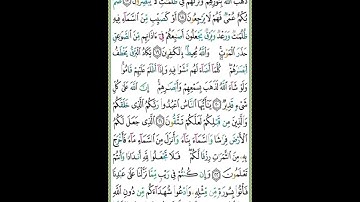 ذَهَبَ ٱللَّهُ بِنُورِهِمْ وَتَرَكَهُمْ فِى ظُلُمَٰتٍ لَّا يُبْصِرُونَ ﴿١٧﴾ صُمٌّۢ
بُكْمٌ عُمْىٌ فَهُمْ لَا يَرْجِعُونَ ﴿١٨﴾ أَوْ كَصَيِّبٍ مِّنَ ٱلسَّمَآءِ فِيهِ
ظُلُمَٰتٌ وَرَعْدٌ وَبَرْقٌ يَجْعَلُونَ أَصَٰبِعَهُمْ فِىٓ ءَاذَانِهِم مِّنَ ٱلصَّوَٰعِقِ
حَذَرَ ٱلْمَوْتِ ۚ وَٱللَّهُ مُحِيطٌۢ بِٱلْكَٰفِرِينَ ﴿١٩﴾ يَكَادُ ٱلْبَرْقُ يَخْطَفُ
أَبْصَٰرَهُمْ ۖ كُلَّمَآ أَضَآءَ لَهُم مَّشَوْا۟ فِيهِ وَإِذَآ أَظْلَمَ عَلَيْهِمْ قَامُوا۟ ۚ
وَلَوْ شَآءَ ٱللَّهُ لَذَهَبَ بِسَمْعِهِمْ وَأَبْصَٰرِهِمْ ۚ إِنَّ ٱللَّهَ عَلَىٰ كُلِّ
شَىْءٍ قَدِيرٌ ﴿٢٠﴾ يَٰٓأَيُّهَا ٱلنَّاسُ ٱعْبُدُوا۟ رَبَّكُمُ ٱلَّذِى خَلَقَكُمْ
وَٱلَّذِينَ مِن قَبْلِكُمْ لَعَلَّكُمْ تَتَّقُونَ ﴿٢١﴾ ٱلَّذِى جَعَلَ لَكُمُ
ٱلْأَرْضَ فِرَٰشًا وَٱلسَّمَآءَ بِنَآءً وَأَنزَلَ مِنَ ٱلسَّمَآءِ مَآءً فَأَخْرَجَ
بِهِۦ مِنَ ٱلثَّمَرَٰتِ رِزْقًا لَّكُمْ ۖ فَلَا تَجْعَلُوا۟ لِلَّهِ أَندَادًا وَأَنتُمْ
تَعْلَمُونَ ﴿٢٢﴾ وَإِن كُنتُمْ فِى رَيْبٍ مِّمَّا نَزَّلْنَا عَلَىٰ عَبْدِنَا
فَأْتُوا۟ بِسُورَةٍ مِّن مِّثْلِهِۦ وَٱدْعُوا۟ شُهَدَآءَكُم مِّن دُونِ ٱللَّهِ